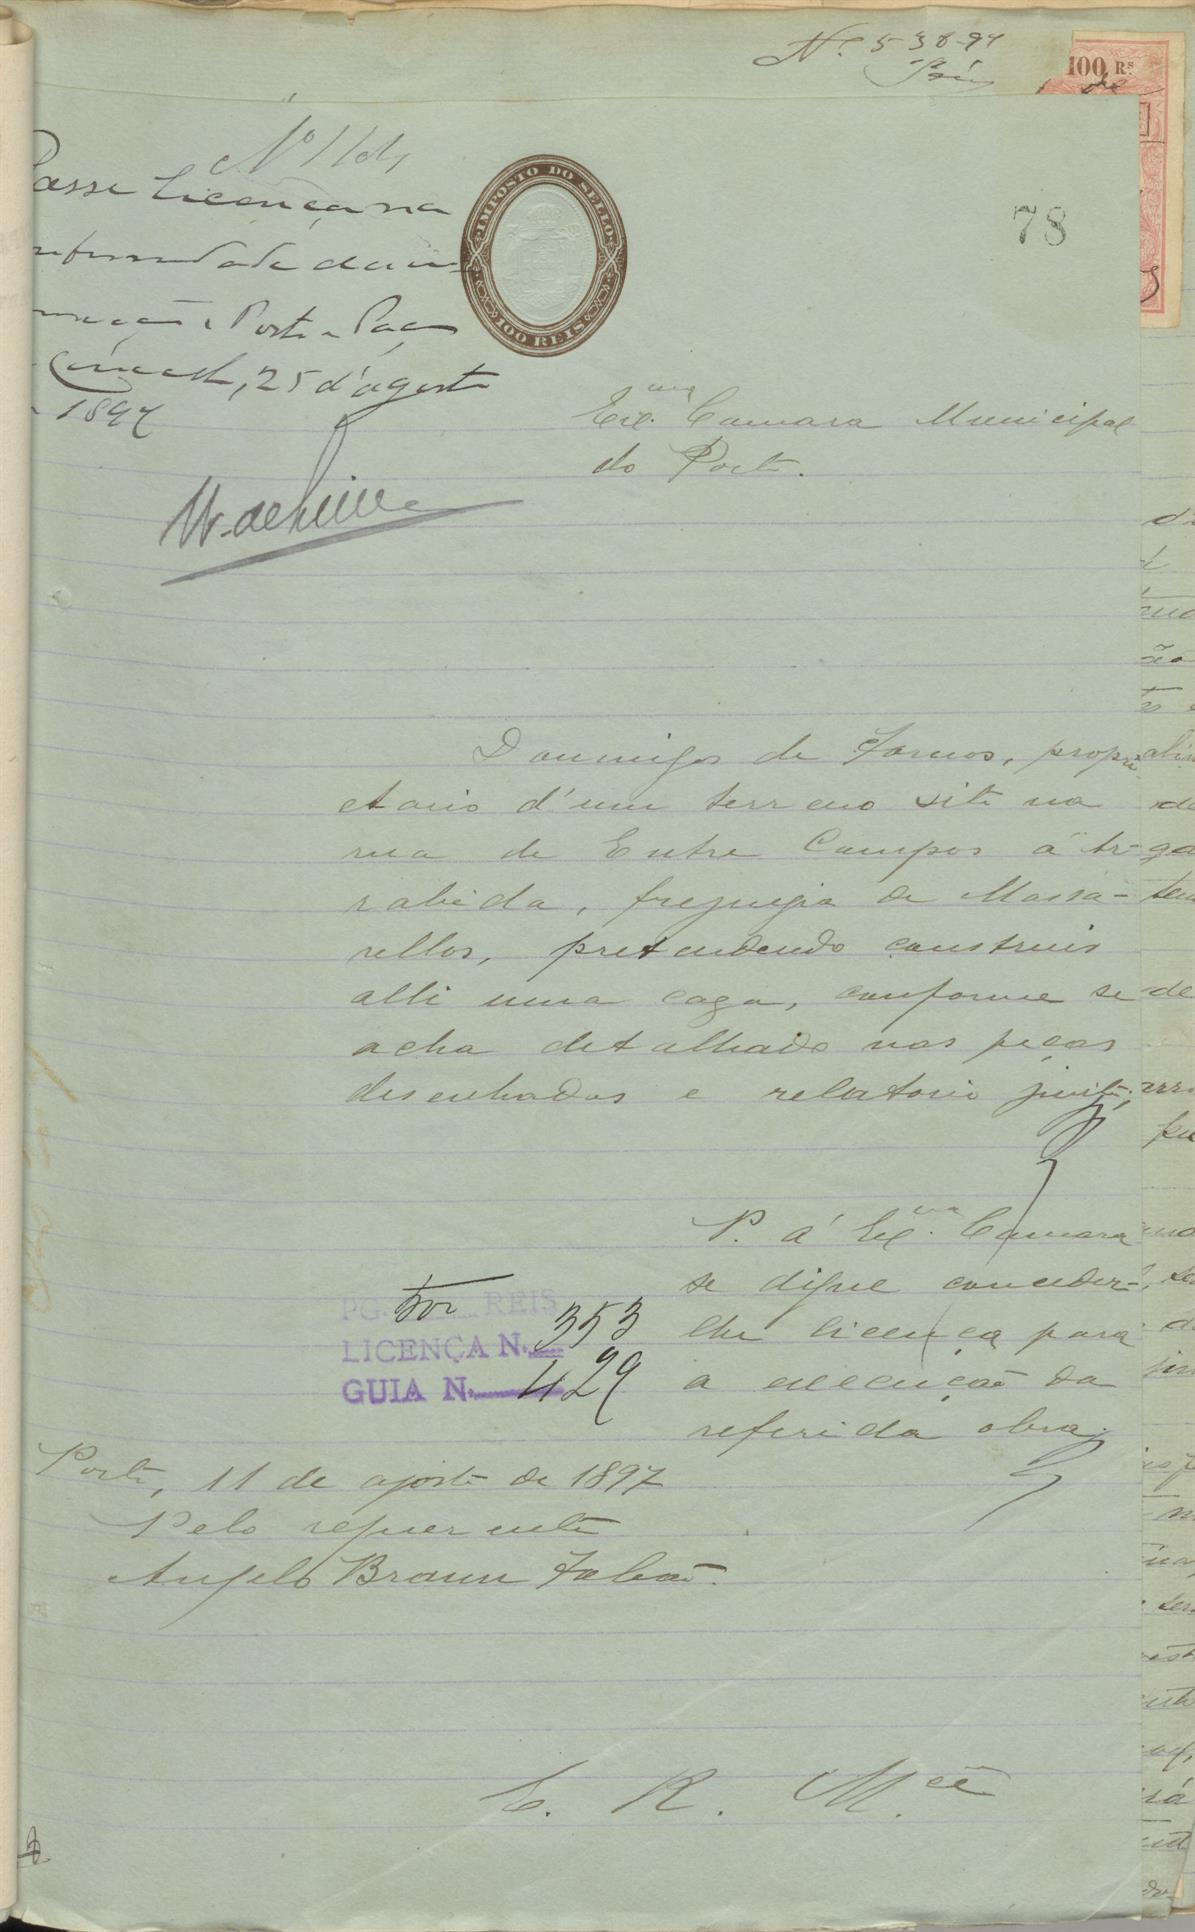 Nº 538-97
100 Rs
Passe Licença na
Porto e Paços
do Concelho, 25 d'agosto
1897
IMPOSTO DO SELLO
100 REIS
78
Exc.ma Camara Municipal
do Porto.
Domingos de Fornos, propri-
etario d'um terreno sito na
rua de Entre Campos á Ar-
rabida, freguezia de Massa-
rellos, pretendendo construir
alli uma caza, conforme se
acha detalhado nas peças
desenhadas e relatorio junto,
P. á Exc.ma Camara
se digne conceder-
lhe licença para
a execução da
referida obra.
PG. 500 REIS
LICENÇA N. 353
GUIA N. 429
Porto, 11 de agosto de 1897
Pelo requerente
Angelo Braun
E. R. M.cê